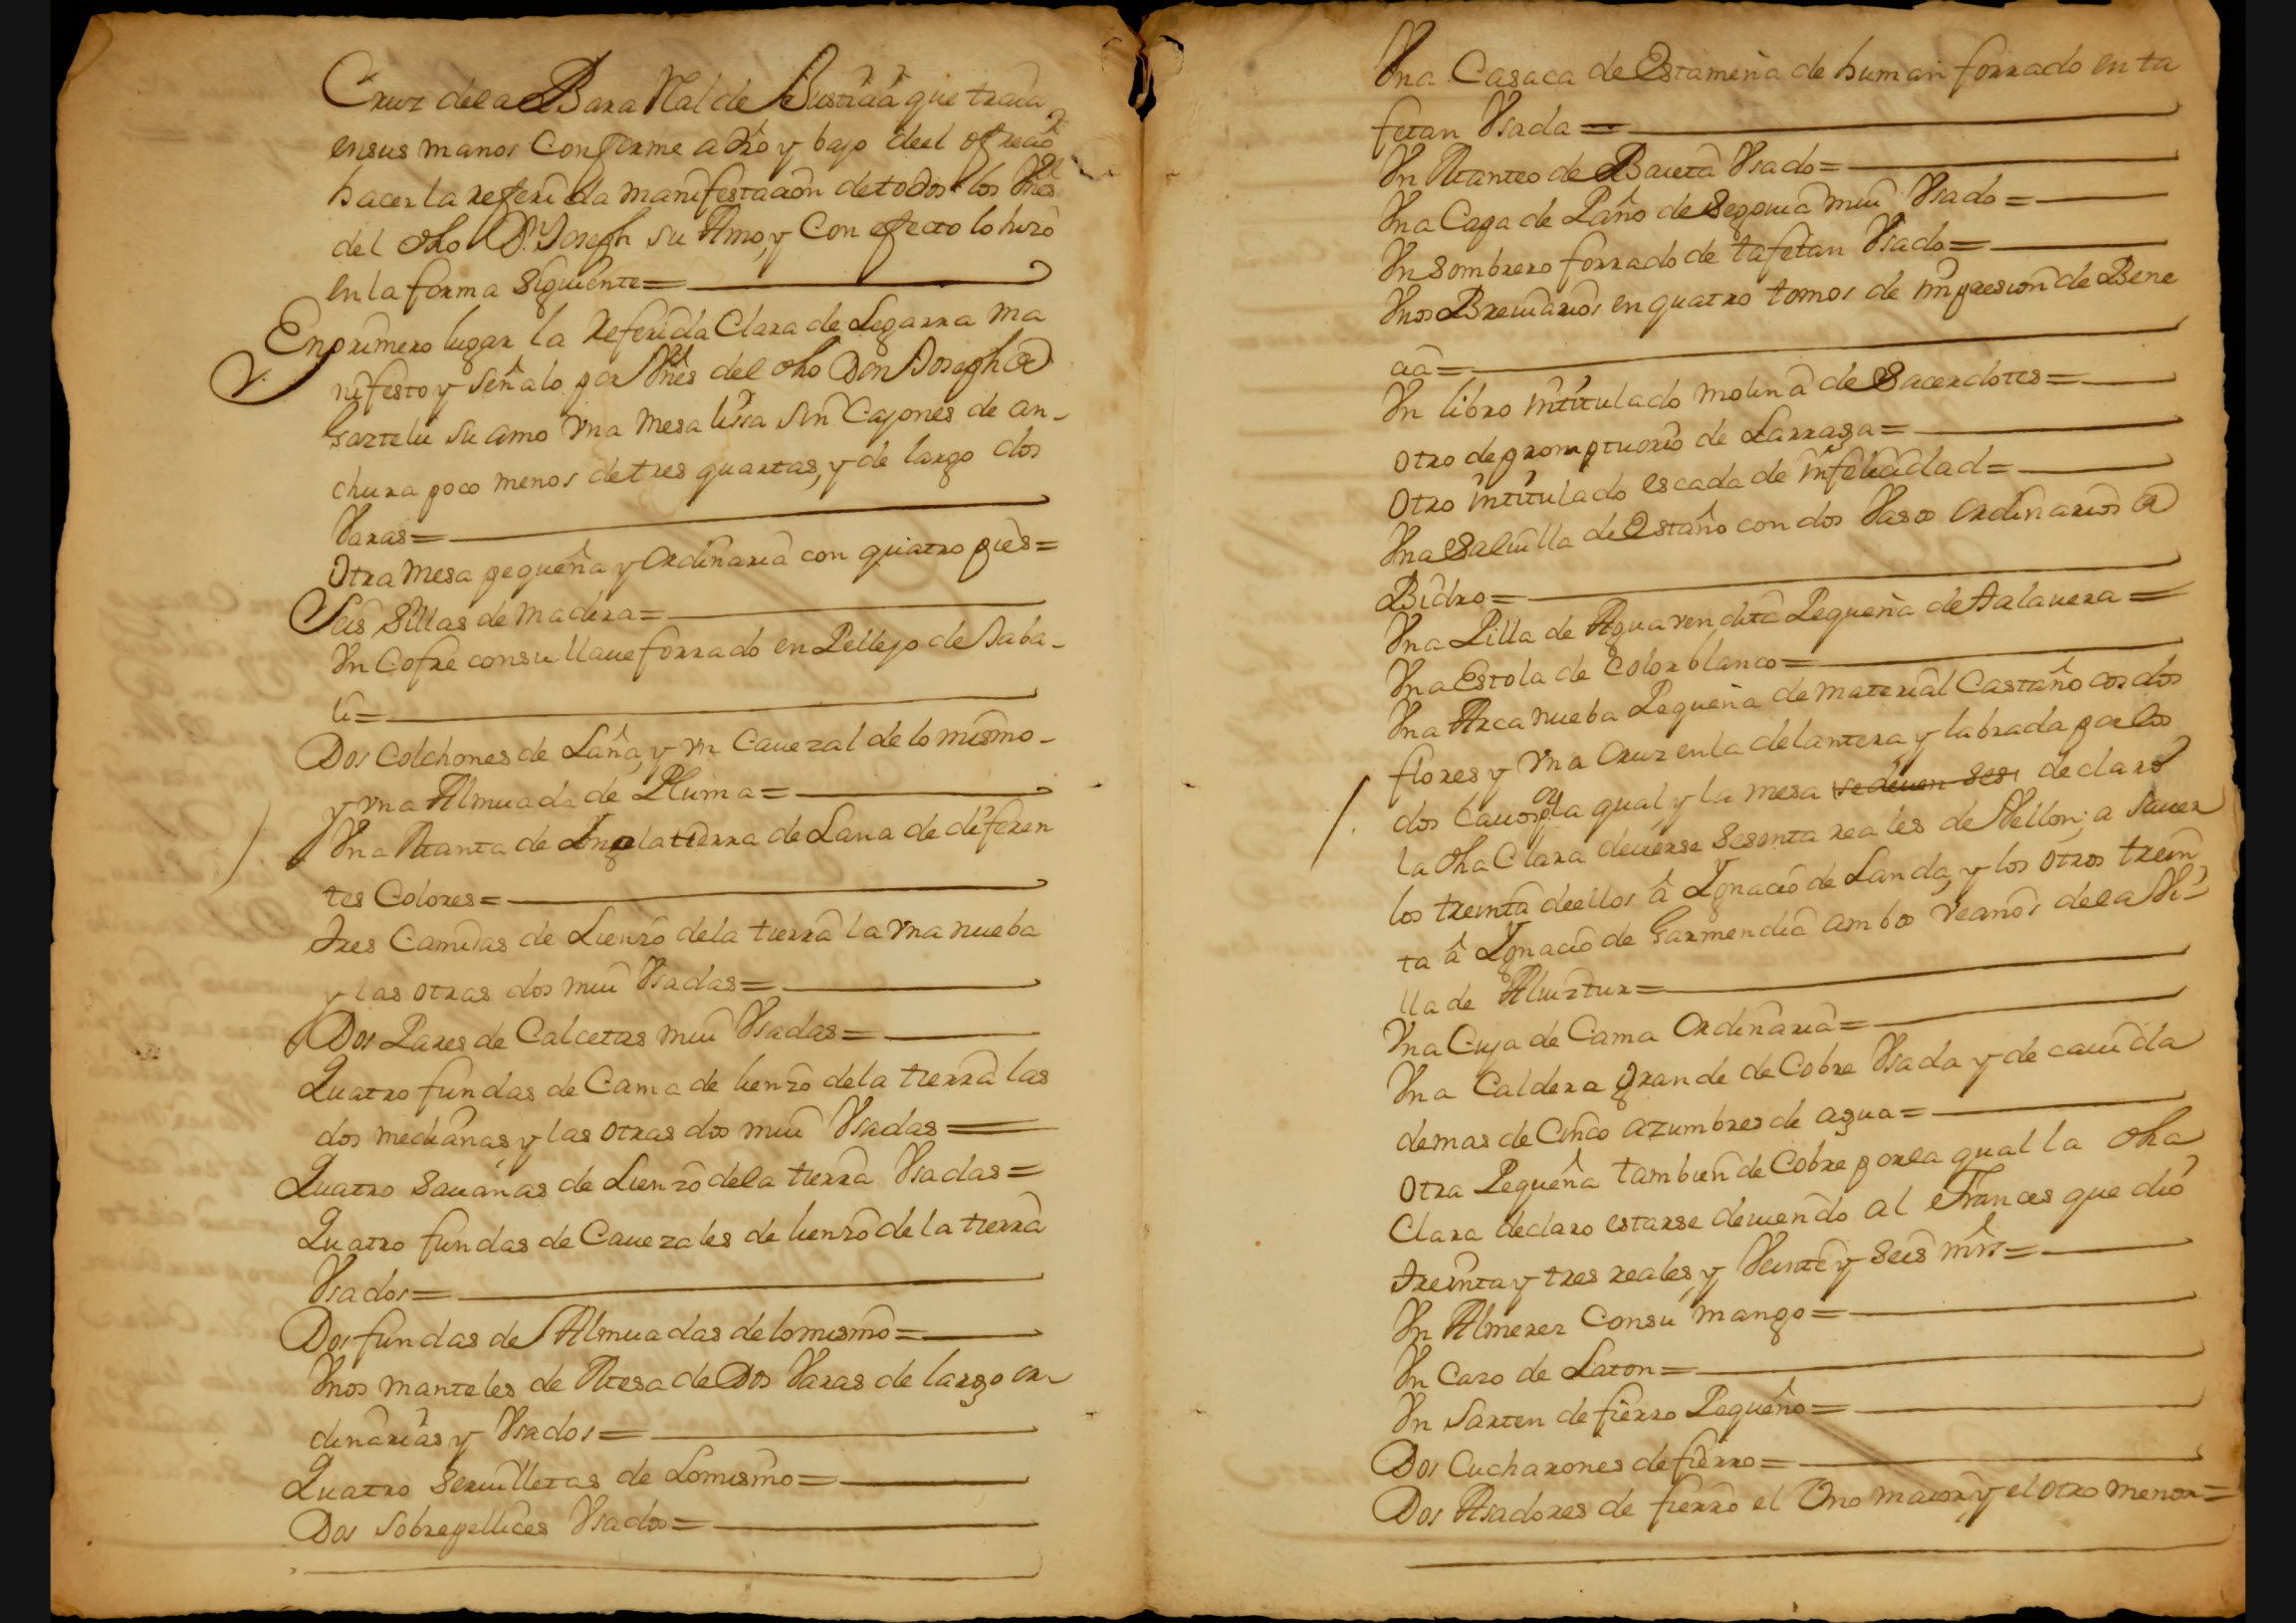 Cruz de la Bara Rl de Justicia que traia
en sus manos Conforme a dro y bajo de el ofrecio
hacer la referida manifestacion de todos los Vnes
del dho Dn Joseph su Amo, y Con efecto lo hizo
en la forma Siguiente=
En primero lugar la referida Clara de Legarra ma
nifesto y señalo por Vnes del dho Don Joseph de
Gaztelu su amo vna mesa lissa sin Cajones de an-
chura poco menos de tres quartas, y de largo dos
Varas=
Otra Mesa pequeña y ordinaria con quatro pies=
Seis Sillas de madera=
Vn Cofre con su llaue forrado en Pellejo de Jaba-
li=
Dos Colchones de Lana, y vn Cauezal de lo mismo-
y vna Almuada de Pluma=
Vna Manta de Inglatierra de Lana de diferen
tes Colores=
Tres Camisas de Lienzo de la tierra la vna nueba
y las otras dos mui Vsadas=
Dos Pares de Calcetas mui Vsadas=
Quatro fundas de Cama de lienzo de la tierra las
dos medianas y las otras dos mui Vsadas=
Quatro Sauanas de Lienzo de la tierra Vsadas=
Quatro fundas de Cauezales de lienzo de la tierra
Vsados=
Dos fundas de Almuadas de lo mismo=
Vnos manteles de Mesa de Dos Varas de largo or-
dinarias y Vsados=
Quatro Seruilletas de Lo mismo=
Dos Sobrepellices Vsados=
Vna Casaca de Estameña de human forrado en ta
fetan Vsada=
Vn Manteo de Baieta Vsado=
Vna Capa de Paño de Segouia mui Vsado=
Vn Sombrero forrado de tafetan Vsado=
Vnos Breuiarios en quatro tomos de impresion de Bene
cia=
Vn libro intitulado molina de Sacerdotes=
Otro de promptuario de Larraga=
Otro intitulado escada de infelicidad=
Vna Saluilla de Estaño con dos Vasos ordinarios de
Bidro=
Vna Pilla de Agua vendita Pequeña de Talauera=
Vna Estola de Color blanco=
Vna Arca nueba Pequeña de material Castaño con dos
flores y vna Cruz en la delantera y labrada por los
dos cauos por la qual, y la mesa se deuen ses declaro
la dha Clara deuerse Sesenta reales de Vellon; a Sauer
los treinta de ellos â Ignacio de Landa, y los otros trein
ta â Ignacio de Garmendia ambos vecinos de la Vi-
lla de Aluiztur=
Vna Cuja de Cama Ordinaria=
Vna Caldera grande de Cobre Vsada y de cauida
de mas de Cinco azumbres de agua=
Otra Pequeña tambien de Cobre por la qual la dha
Clara declaro estarse deuiendo al Frances que dio
treinta y tres reales, y Veinte y seis mrs=
Vn Almerez Con su mango=
Vn Cazo de Laton=
Vn Sarten de fierro Pequeño=
Dos Cucharones de fierro=
Dos Asadores de fierro el Vno maior y el otro menor=